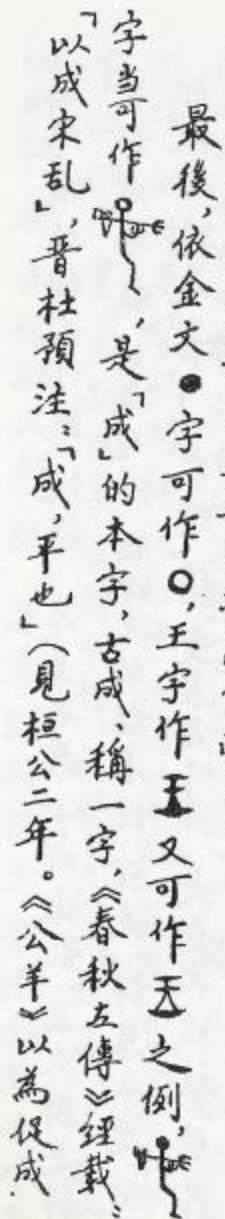 最後，依金文●字可作○，王字作又可作之例，
字当可作，是「成」的本字，古成、稱一字，《春秋左傳》經載：
「以成宋乱」，晋杜預注：「成，平也」（見桓公二年。《公羊》以為促成